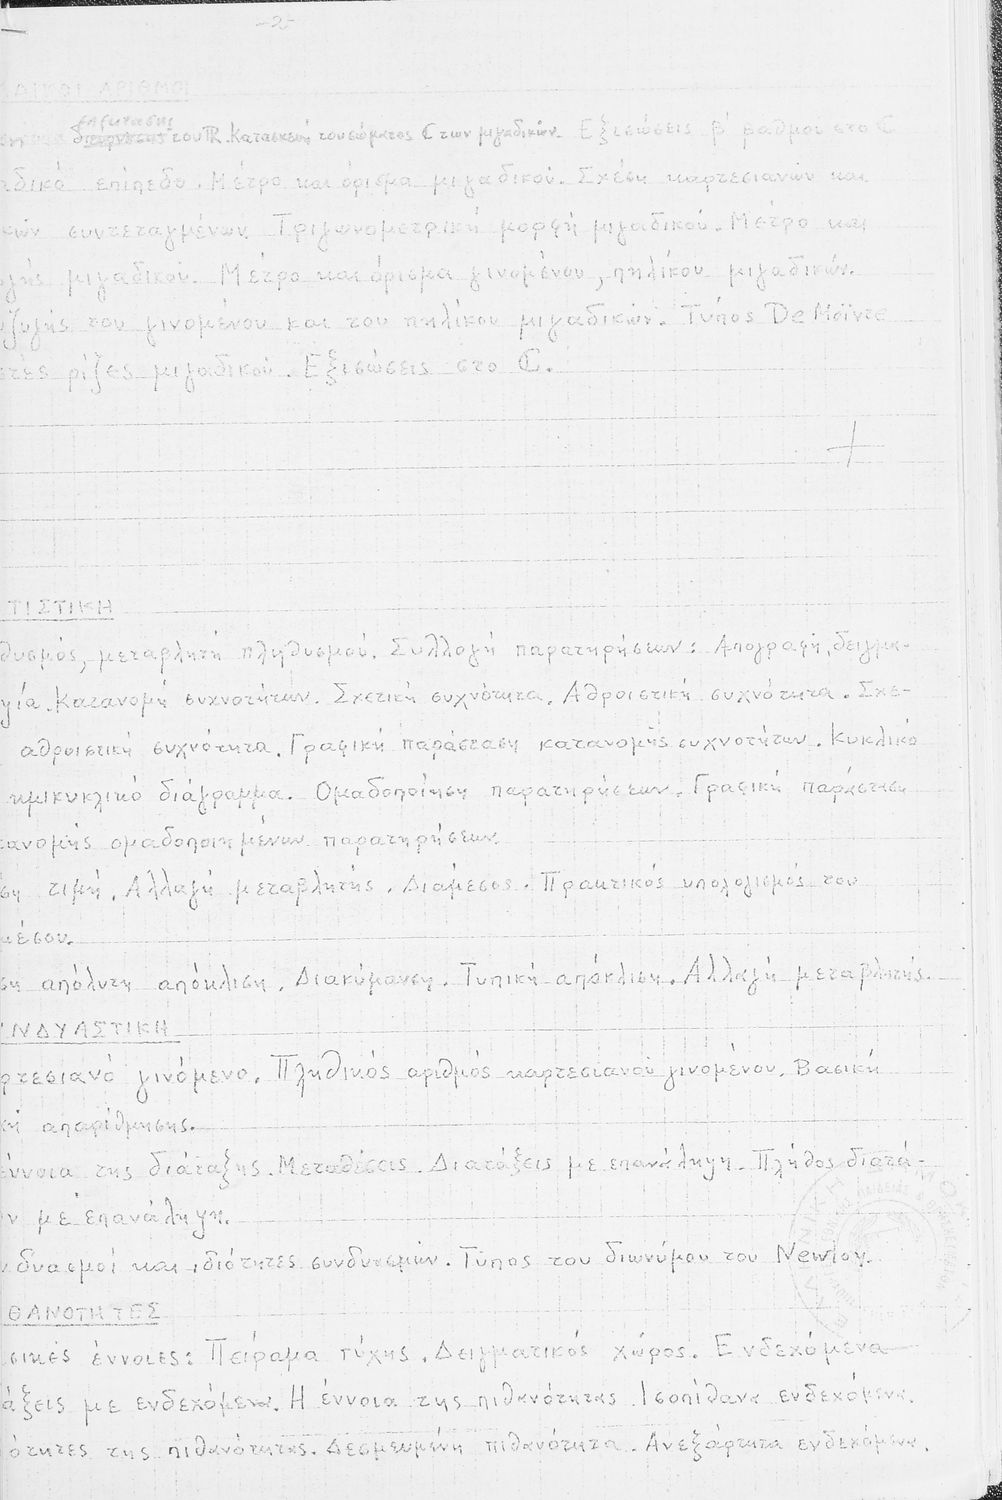 -2-
ΑΔΙΚΟΙ ΑΡΙΘΜΟΙ
επέκτασης
του ℝ. Κατασκευή του σώματος ℂ των μιγαδικών. Εξισώσεις β' βαθμού στο ℂ
αδικό επίπεδο. Μέτρο και όρισμα μιγαδικού. Σχέση καρτεσιανών και
κών συντεταγμένων. Τριγωνομετρική μορφή μιγαδικού. Μέτρο και
γής μιγαδικού. Μέτρο και όρισμα γινομένου, πηλίκου μιγαδικών.
υζυγής του γινομένου και του πηλίκου μιγαδικών. Τύπος De Moivre
στές ρίζες μιγαδικού. Εξισώσεις στο ℂ.
ΤΙΣΤΙΚΗ
θυσμός, μεταβλητή πληθυσμού. Συλλογή παρατηρήσεων: Απογραφή, δειγμα-
ψία. Κατανομή συχνοτήτων. Σχετική συχνότητα. Αθροιστική συχνότητα. Σχε-
αθροιστική συχνότητα. Γραφική παράσταση κατανομής συχνοτήτων. Κυκλικό
ημικυκλικό διάγραμμα. Ομαδοποίηση παρατηρήσεων. Γραφική παράσταση
τανομής ομαδοποιημένων παρατηρήσεων.
ση τιμή. Αλλαγή μεταβλητής. Διάμεσος. Πρακτικός υπολογισμός του
μέσου.
ση απόλυτη απόκλιση. Διακύμανση. Τυπική απόκλιση. Αλλαγή μεταβλητής.
ΥΝΔΥΑΣΤΙΚΗ
ρτεσιανό γινόμενο. Πληθικός αριθμός καρτεσιανού γινομένου. Βασική
χή απαρίθμησης.
έννοια της διάταξης. Μεταθέσεις. Διατάξεις με επανάληψη. Πλήθος διατά-
ν με επανάληψη.
υδυασμοί και ιδιότητες συνδυασμών. Τύπος του διωνύμου του Newton.
ΘΑΝΟΤΗΤΕΣ
σικές έννοιες: Πείραμα τύχης. Δειγματικός χώρος. Ενδεχόμενα
άξεις με ενδεχόμενα. Η έννοια της πιθανότητας. Ισοπίθανα ενδεχόμενα.
ότητες της πιθανότητας. Δεσμευμένη πιθανότητα. Ανεξάρτητα ενδεχόμενα.